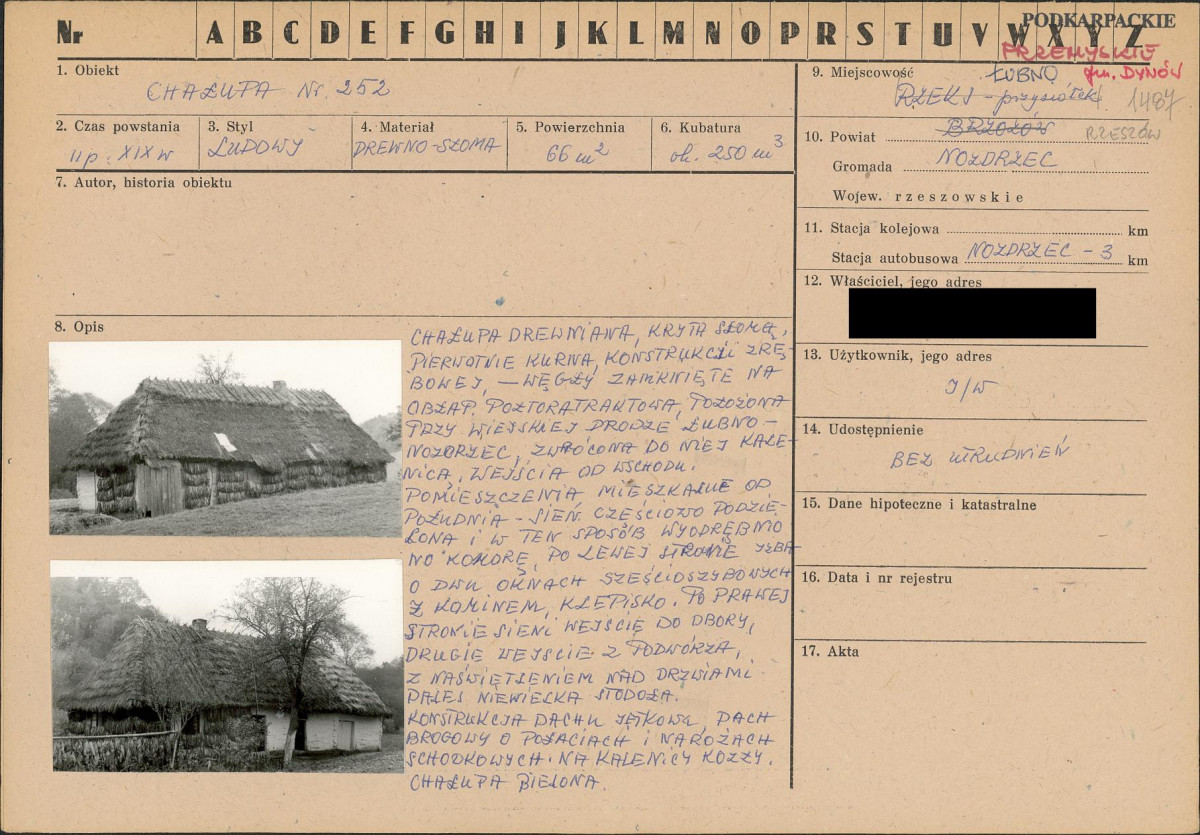 Nr A B C D E F G H I J K L M N O P R S T U V W X Y Z
PODKARPACKIE
PRZEMYSKIE
1. Obiekt
CHAŁUPA Nr. 252
2. Czas powstania
II p. XIX w
3. Styl
LUDOWY
4. Materiał
DREWNO-SŁOMA
5. Powierzchnia
66 m²
6. Kubatura
ok. 250 m³
7. Autor, historia obiektu
8. Opis
CHAŁUPA DREWNIANA, KRYTA SŁOMĄ,
PIERWOTNIE KURNA, KONSTRUKCJI ZRĘ-
BOWEJ, – WĘGŁY ZAMKNIĘTE NA
OBŁAP. PÓŁTORATRAKTOWA, POŁOŻONA
PRZY WIEJSKIEJ DRODZE ŁUBNO-
NOZDRZEC, ZWRÓCONA DO NIEJ KALE-
NICĄ, WEJŚCIA OD WSCHODU.
POMIESZCZENIA MIESZKALNE OD
POŁUDNIA - SIEŃ CZĘŚCIOWO PODZIE-
LONA I W TEN SPOSÓB WYODRĘBNIO
NO KOMORĘ, PO LEWEJ STRONIE IZBA
O DWU OKNACH SZEŚCIOSZYBOWYCH
Z KOMINEM, KLEPISKO. PO PRAWEJ
STRONIE SIENI WEJŚCIE DO OBORY,
DRUGIE WEJŚCIE Z PODWÓRZA,
Z NAŚWIETLENIEM NAD DRZWIAMI
DALEJ NIEWIELKA STODOŁA.
KONSTRUKCJA DACHU JĘTKOWA, DACH
BROGOWY O POŁACIACH I NAROŻACH
SCHODKOWYCH. NA KALENICY KOZŁY.
CHAŁUPA BIELONA.
9. Miejscowość
ŁUBNO gm. DYNÓW
RZEKI - przysiółek 1487
10. Powiat BRZOZÓW RZESZÓW
Gromada NOZDRZEC
Wojew. rzeszowskie
11. Stacja kolejowa km
Stacja autobusowa NOZDRZEC - 3 km
12. Właściciel, jego adres
13. Użytkownik, jego adres
J/W
14. Udostępnienie
BEZ UTRUDNIEŃ
15. Dane hipoteczne i katastralne
16. Data i nr rejestru
17. Akta